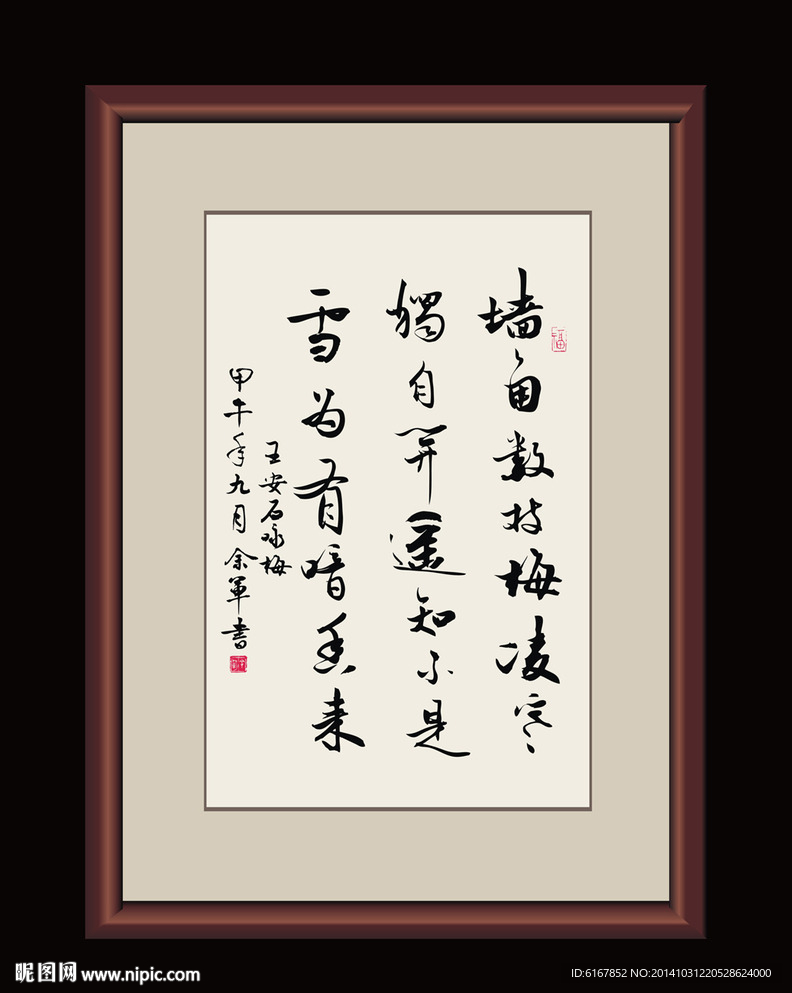 墙角数枝梅凌寒
独自开遥知不是
雪为有暗香来
王安石咏梅
甲午年九月余军书
福
昵图网 www.nipic.com
ID:6167852 NO:20141031220528624000